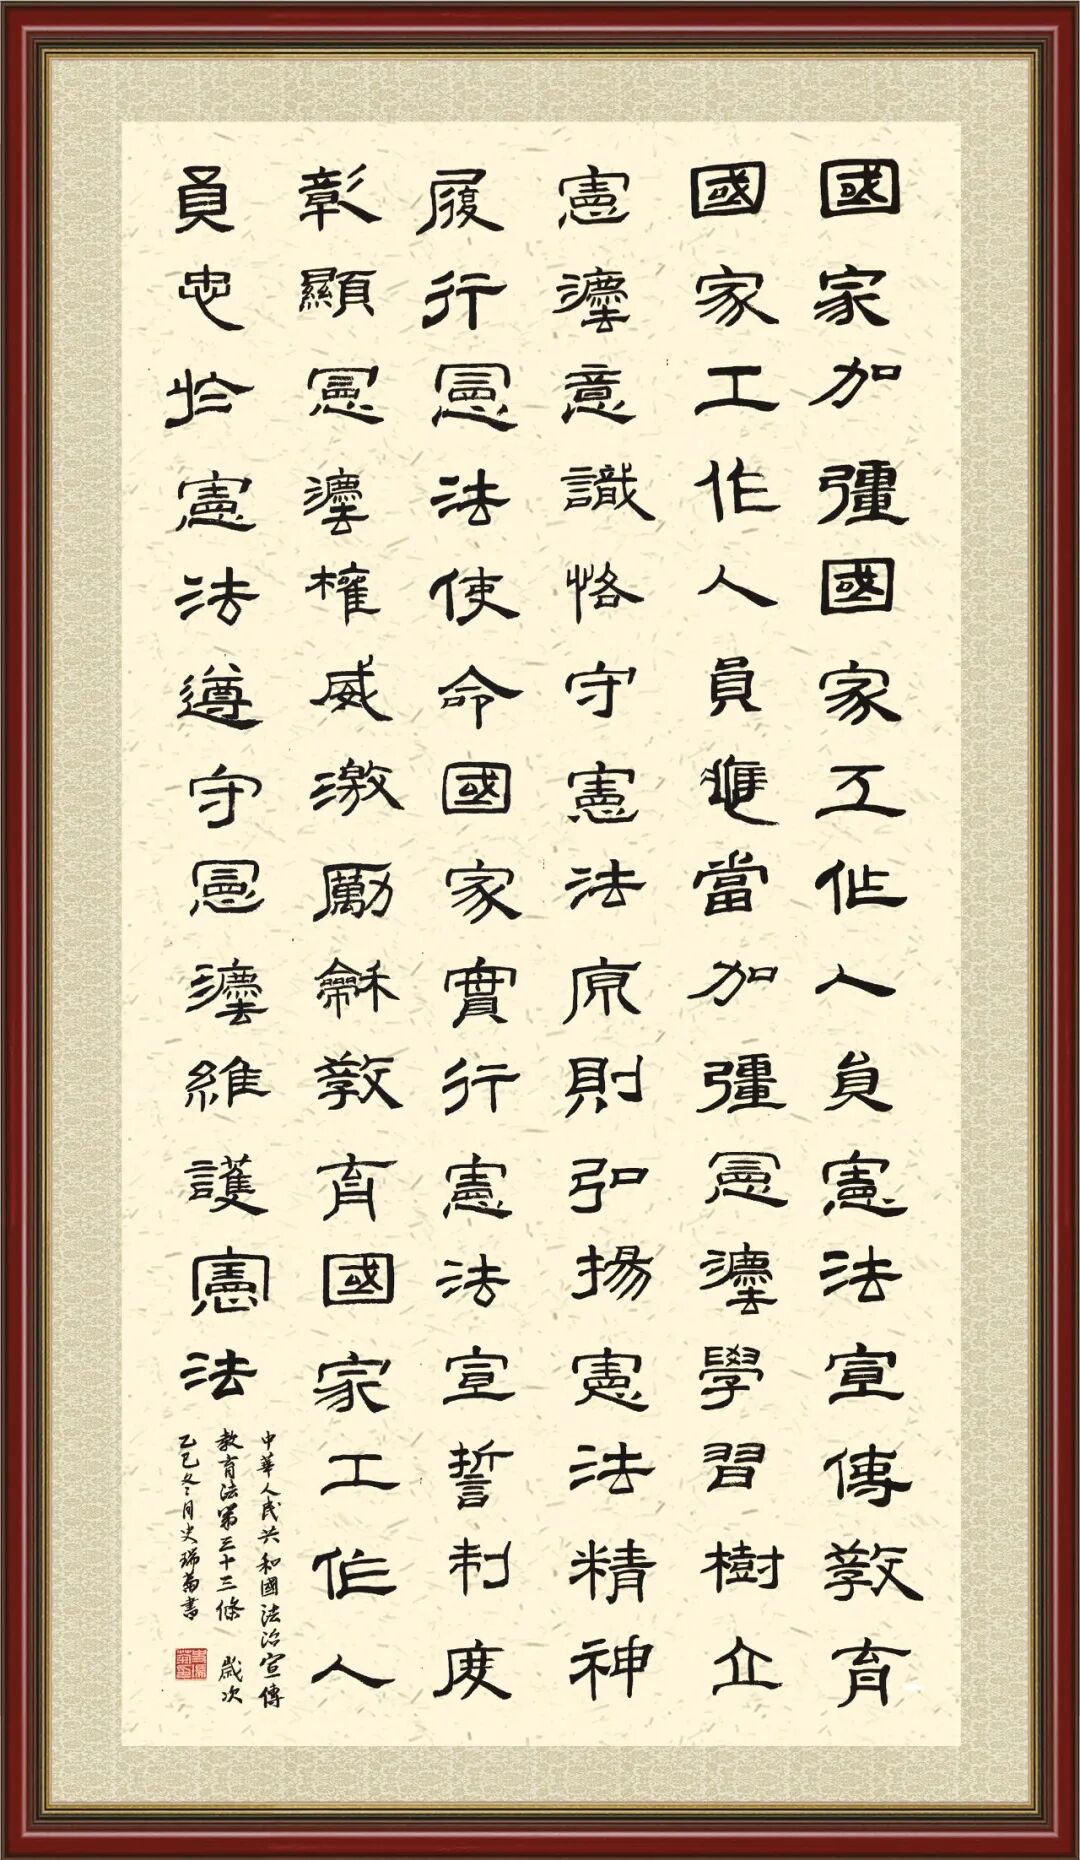 國家加彊國家工作人員憲法宣傳教育
國家工作人員進當加彊憲灋學習樹立
憲灋意識恪守憲法原則弘揚憲法精神
履行憲法使命國家實行憲法宣誓制度
彰顯憲灋權威激勵龢教育國家工作人
員忠於憲法遵守憲灋維護憲法
中華人民共和國法治宣傳
教育法第三十三條 歲次
乙巳冬月史瑞菊書